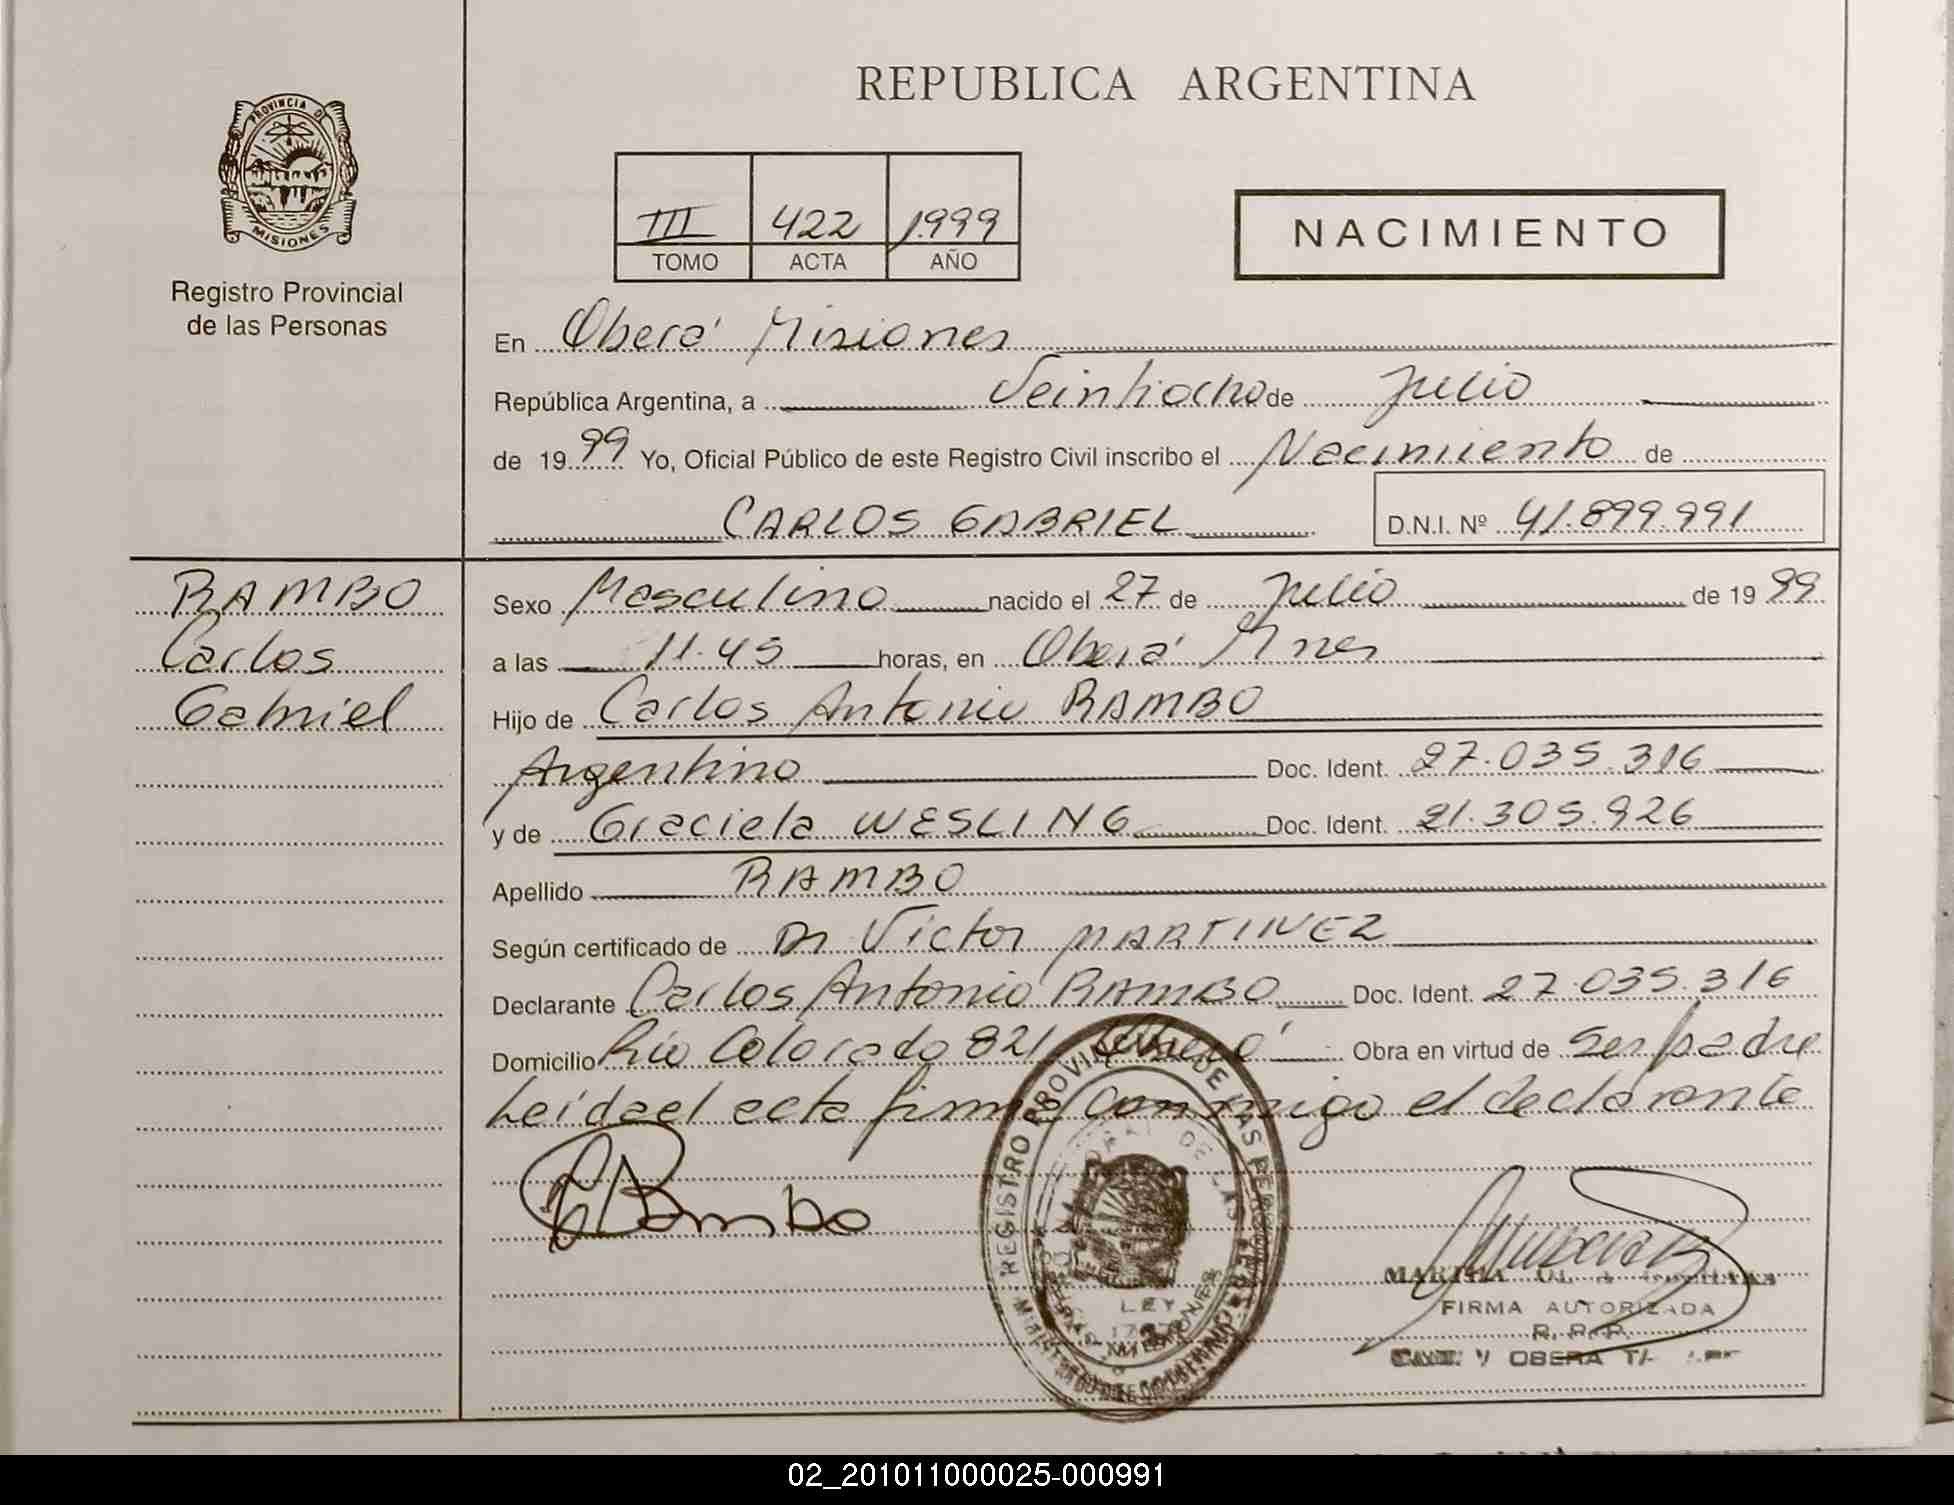 REPUBLICA ARGENTINA
PROVINCIA D
MISIONES
Registro Provincial
de las Personas
III 422 1999
TOMO ACTA AÑO
NACIMIENTO
En Oberá Misiones
República Argentina, a Veintiocho de Julio
de 1999 Yo, Oficial Público de este Registro Civil inscribo el Nacimiento de
CARLOS GABRIEL D.N.I. Nº 41.899.991
RAMBO
Carlos
Gabriel
Sexo Masculino nacido el 27 de Julio de 1999
a las 11.45 horas, en Oberá Mnes
Hijo de Carlos Antonio RAMBO
Argentino Doc. Ident. 27.035.316
y de Graciela WESLING Doc. Ident. 21.305.926
Apellido RAMBO
Según certificado de Dr Victor MARTINEZ
Declarante Carlos Antonio RAMBO Doc. Ident. 27.035.316
Domicilio Río Colorado 821 Oberá Obra en virtud de ser padre
Leída el acta firma conmigo el declarante
Rambo
REGISTRO PROVINCIAL DE LAS PERSONAS
LEY
MARTHA
FIRMA AUTORIZADA
R. P. P.
OBERA
02_201011000025-000991